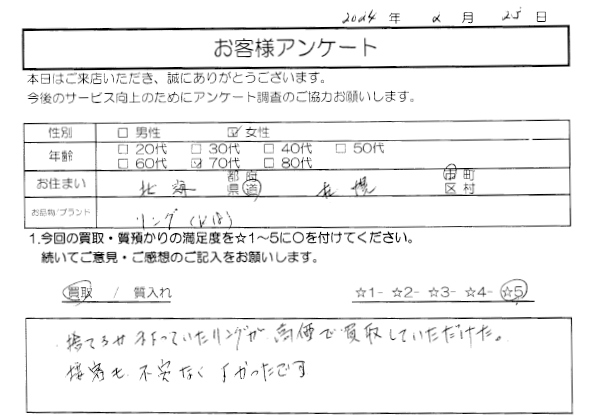 2024 年 2 月 25 日
お客様アンケート
本日はご来店いただき、誠にありがとうございます。
今後のサービス向上のためにアンケート調査のご協力お願いします。
性別 □ 男性 ☑ 女性
年齢 □ 20代 □ 30代 □ 40代 □ 50代
□ 60代 ☑ 70代 □ 80代
お住まい 北海 都 府 県 道 札幌 市 町 区 村
お品物/ブランド リング
1.今回の買取・質預かりの満足度を☆1～5に○を付けてください。
続いてご意見・ご感想のご記入をお願いします。
買取 / 質入れ ☆1- ☆2- ☆3- ☆4- ☆5
っていたリングが 高価で買取していただけた。
接客も 不安なく よかったです